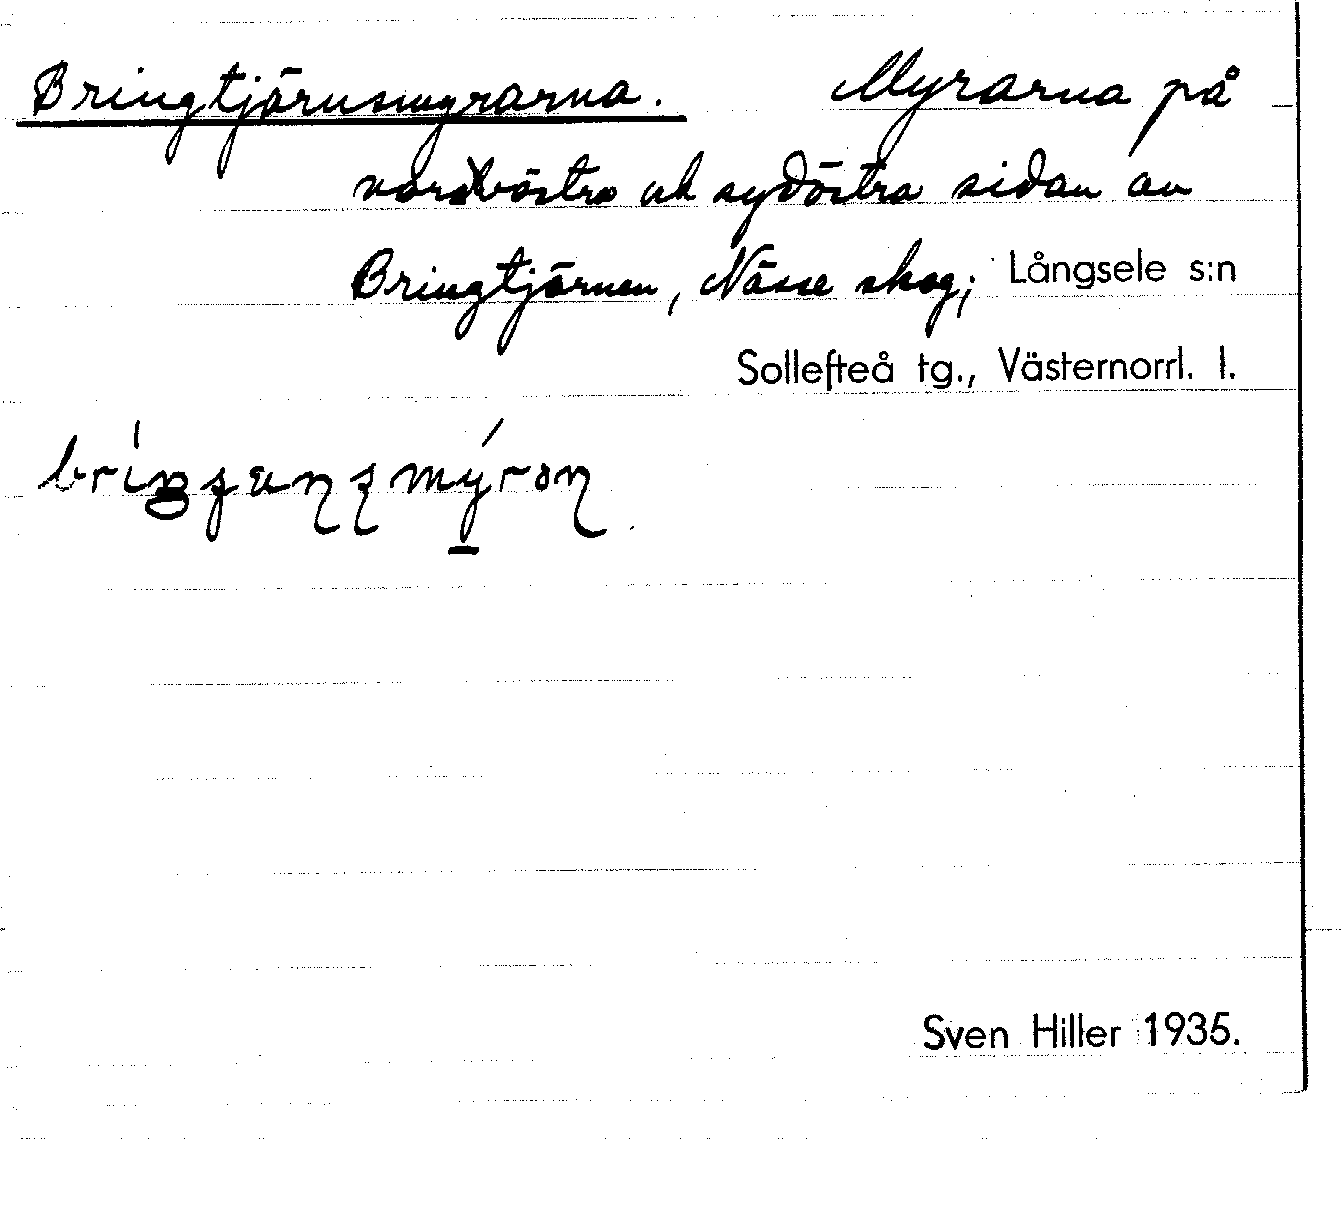 Bringtjärnsmyrarna. Myrarna på
nordvästra och sydöstra sidan av
Bringtjärnen, Nässe skog; Långsele s:n
Sollefteå tg., Västernorrl. l.
Sven Hiller 1935.